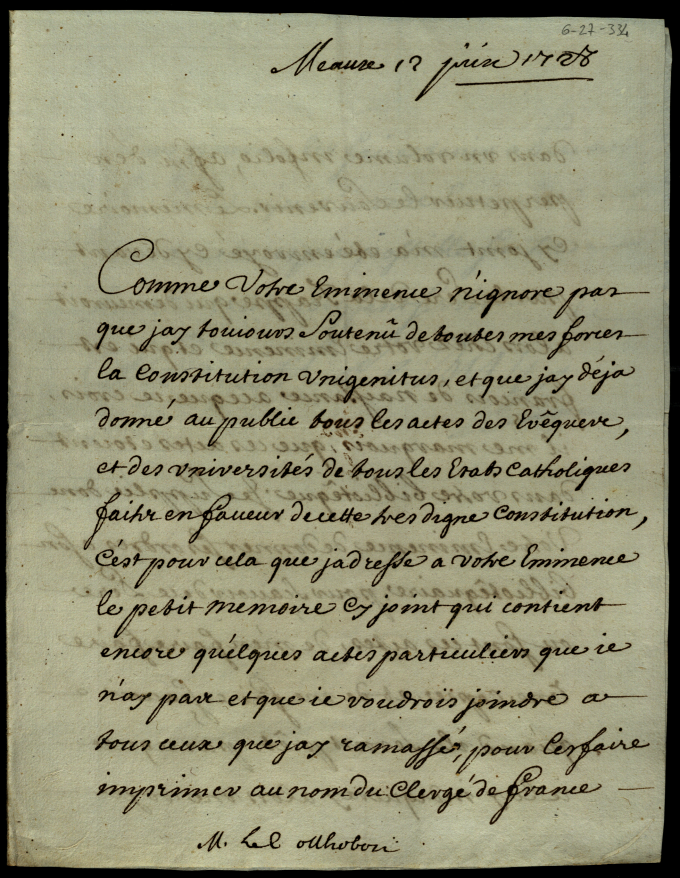 6-27-334
Meaux 12 juin 1728
Comme Votre Eminence n'ignore pas
que jay toujours Soutenû de toutes mes forces
la Constitution Unigenitus, et que jay déja
donné au public tous les actes des Evêques,
et des universités de tous les Etats Catholiques
faits en faveur de cette tres digne Constitution,
C'est pour cela que j'adresse a votre Eminence
le petit memoire Cy joint qui contient
encore quélques actes particuliers que ie
n'ay pas et que ie voudrois joindre a
tous ceux que jay ramassé, pour les faire
imprimer au nom du Clergé de France
M. Le C. Otthobon